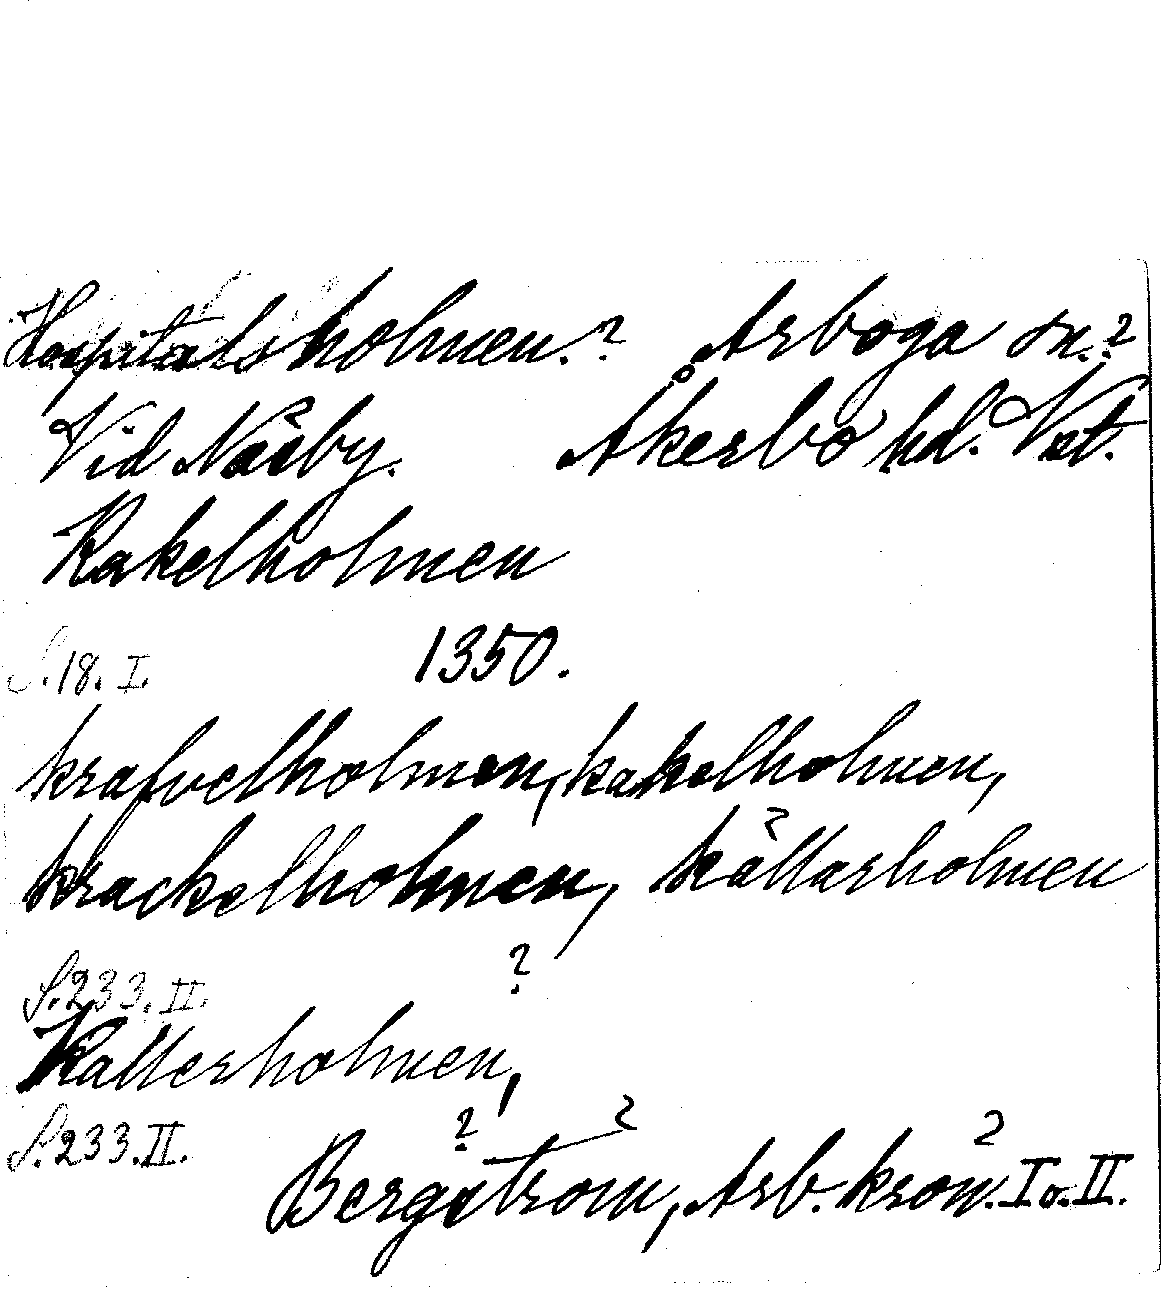 Hospitalsholmen.? Arboga sn.?
Vid Näsby. Åkerbo hd. Vst.
Kakelholmen
S.18. I. 1350.
krafvelholmen, kakelholmen,
krackelholmen, källarholmen
S.233. II. ?
Källerholmen,
S.233. II.
Bergström, Arb. krön. I o. II.